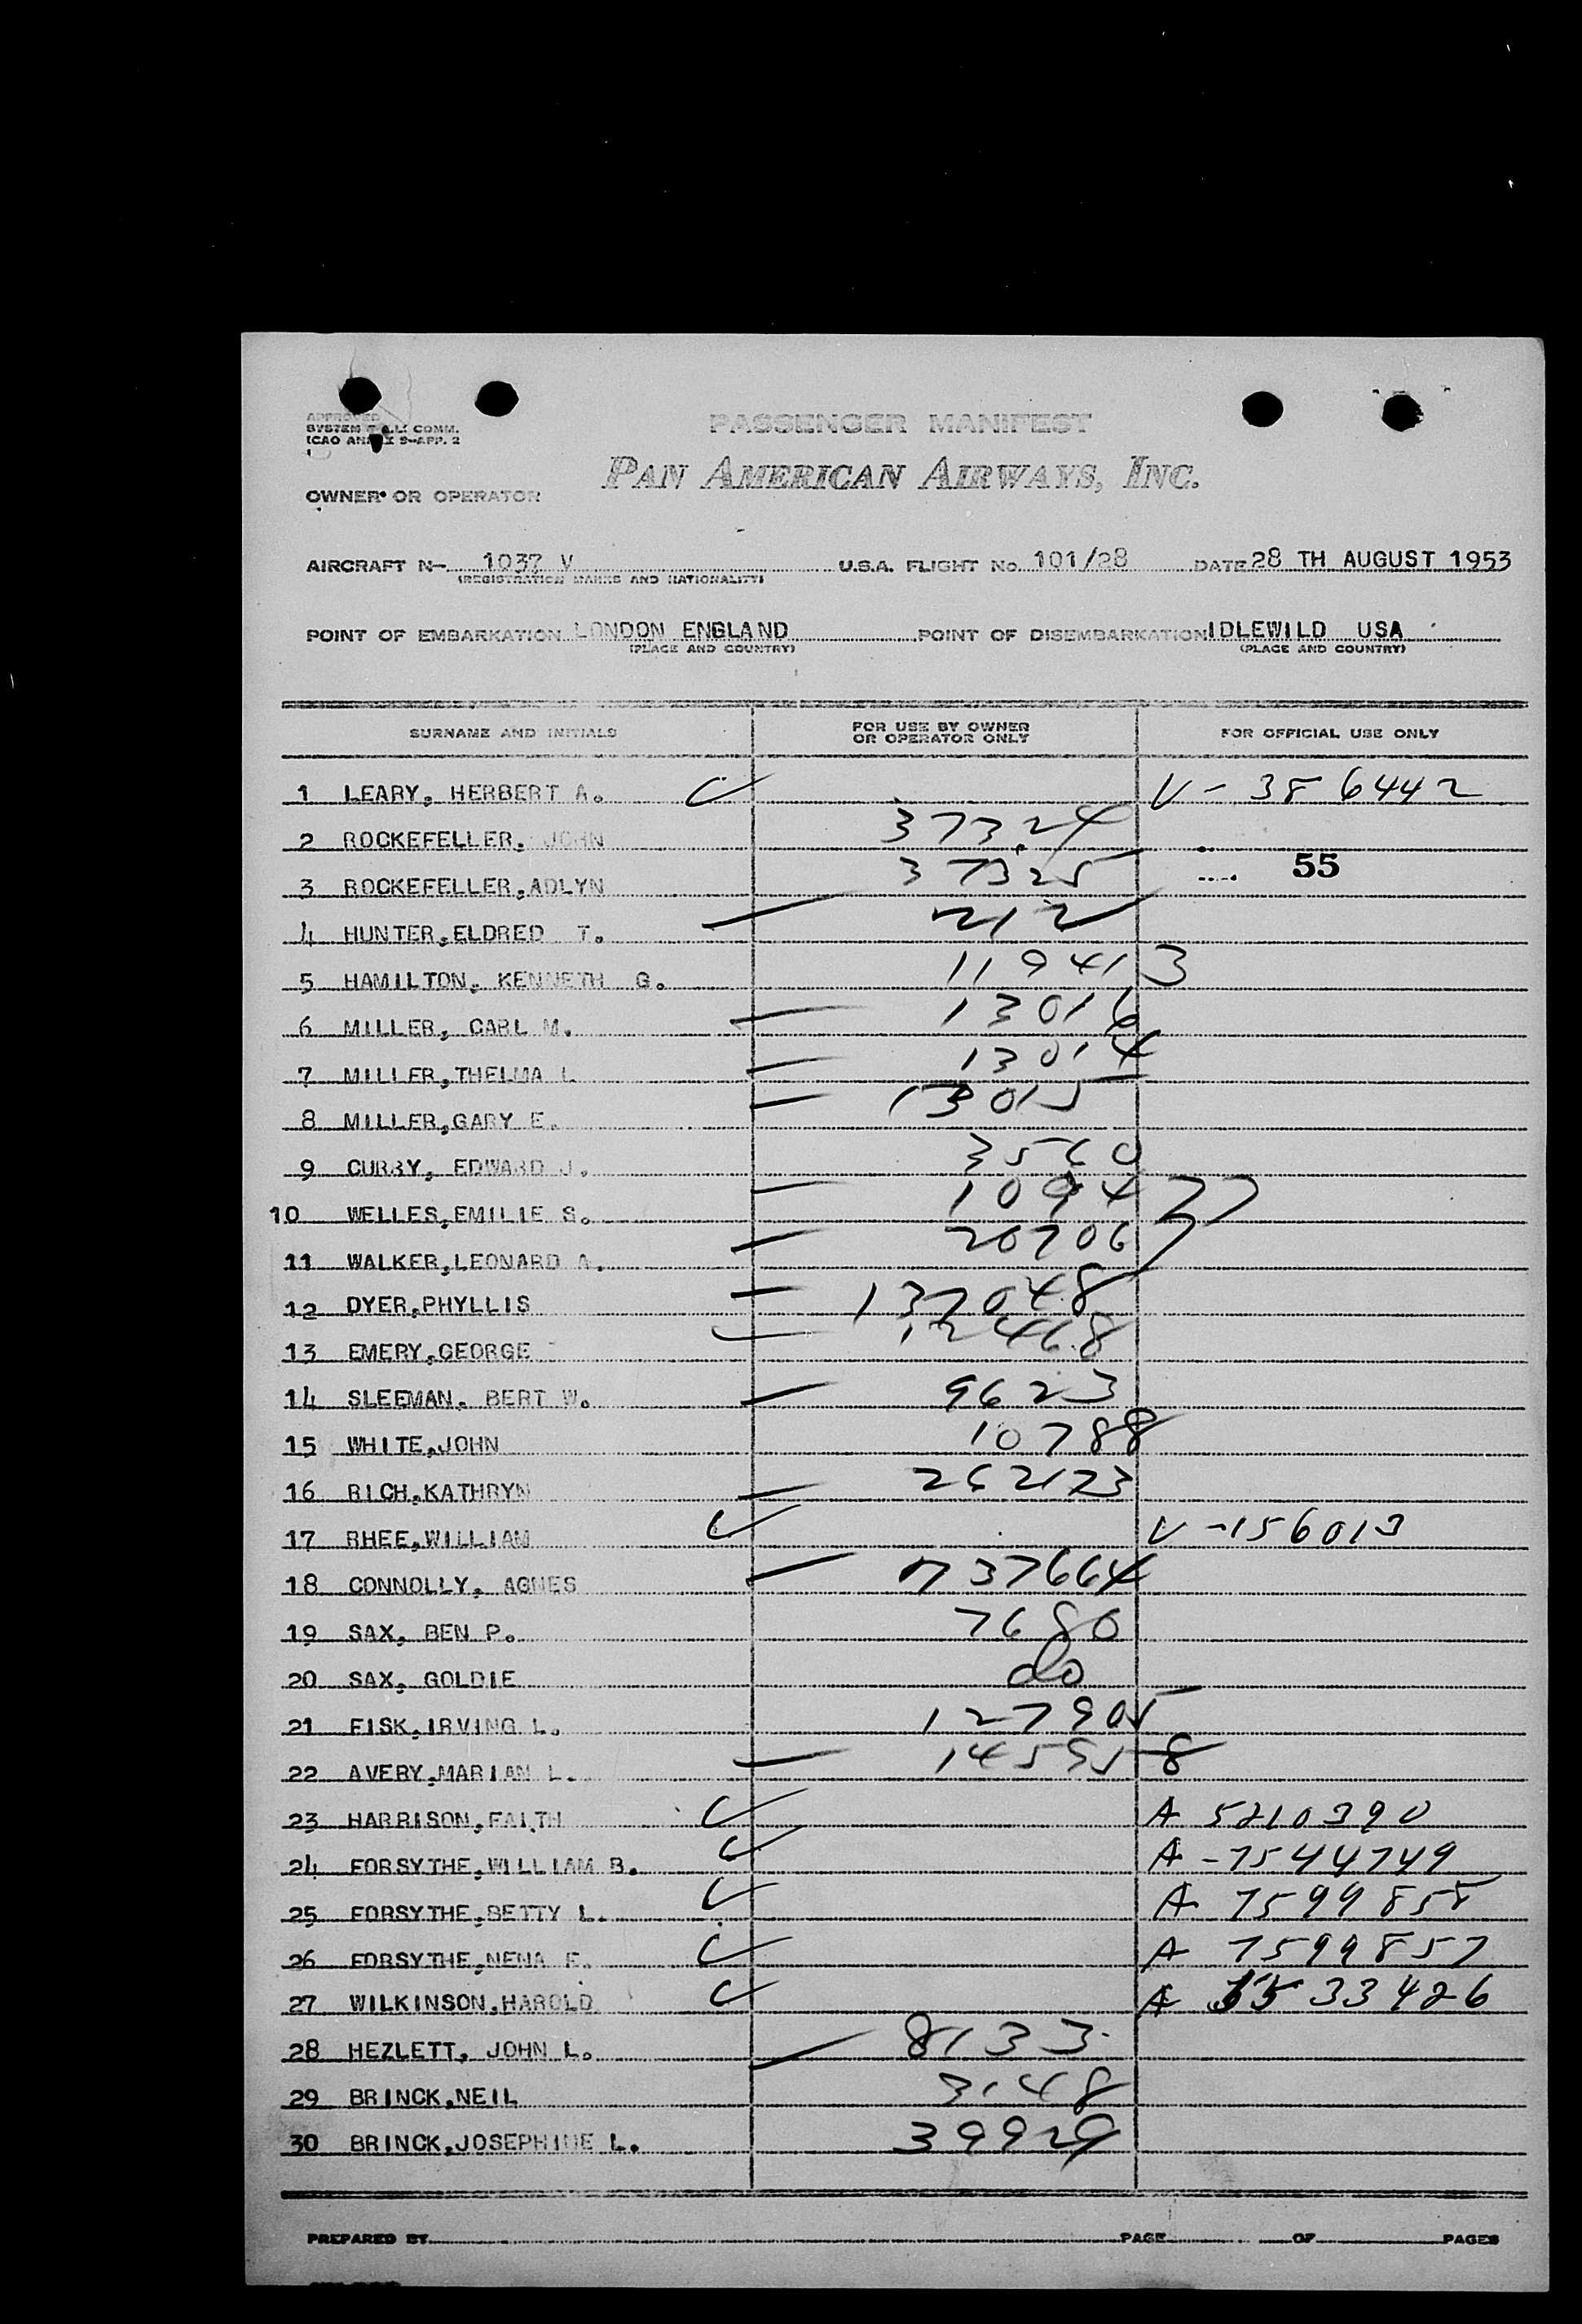 APPROVED
SYSTEM T.A.L. COMM.
ICAO ANNEX 9-APP. 2
PASSENGER MANIFEST
PAN AMERICAN AIRWAYS, INC.
OWNER OR OPERATOR
AIRCRAFT N- 1037 V U.S.A. FLIGHT No. 101/28 DATE 28 TH AUGUST 1953
(REGISTRATION MARKS AND NATIONALITY)
POINT OF EMBARKATION LONDON ENGLAND POINT OF DISEMBARKATION IDLEWILD USA
(PLACE AND COUNTRY) (PLACE AND COUNTRY)
SURNAME AND INITIALS FOR USE BY OWNER OR OPERATOR ONLY FOR OFFICIAL USE ONLY
1 LEARY, HERBERT A. V- 386442
2 ROCKEFELLER, JOHN 37324
3 ROCKEFELLER,ADLYN 37325 55
4 HUNTER,ELDRED T. 212
5 HAMILTON, KENNETH G. 119413
6 MILLER, CARL M. 13016
7 MILLER,THELMA L 13014
8 MILLER,GARY E. 13015
9 CURRY, EDWARD J. 3560
10 WELLES,EMILIE S. 109477
11 WALKER,LEONARD A. 20706
12 DYER,PHYLLIS 137048
13 EMERY,GEORGE 12468
14 SLEEMAN, BERT W. 9623
15 WHITE,JOHN 10788
16 RICH,KATHRYN 262173
17 RHEE,WILLIAM V-156013
18 CONNOLLY, AGNES 737664
19 SAX, BEN P. 7680
20 SAX, GOLDIE do
21 FISK,IRVING L. 127905
22 AVERY,MARIAN L. 145958
23 HARRISON,FAITH A 5210390
24 FORSYTHE,WILLIAM B. A -7544749
25 FORSYTHE,BETTY L. A 7599858
26 FORSYTHE,NENA F. A 7599857
27 WILKINSON,HAROLD A 5533426
28 HEZLETT, JOHN L. 8133
29 BRINCK,NEIL 3148
30 BRINCK,JOSEPHINE L. 39929
PREPARED BY PAGE OF PAGES